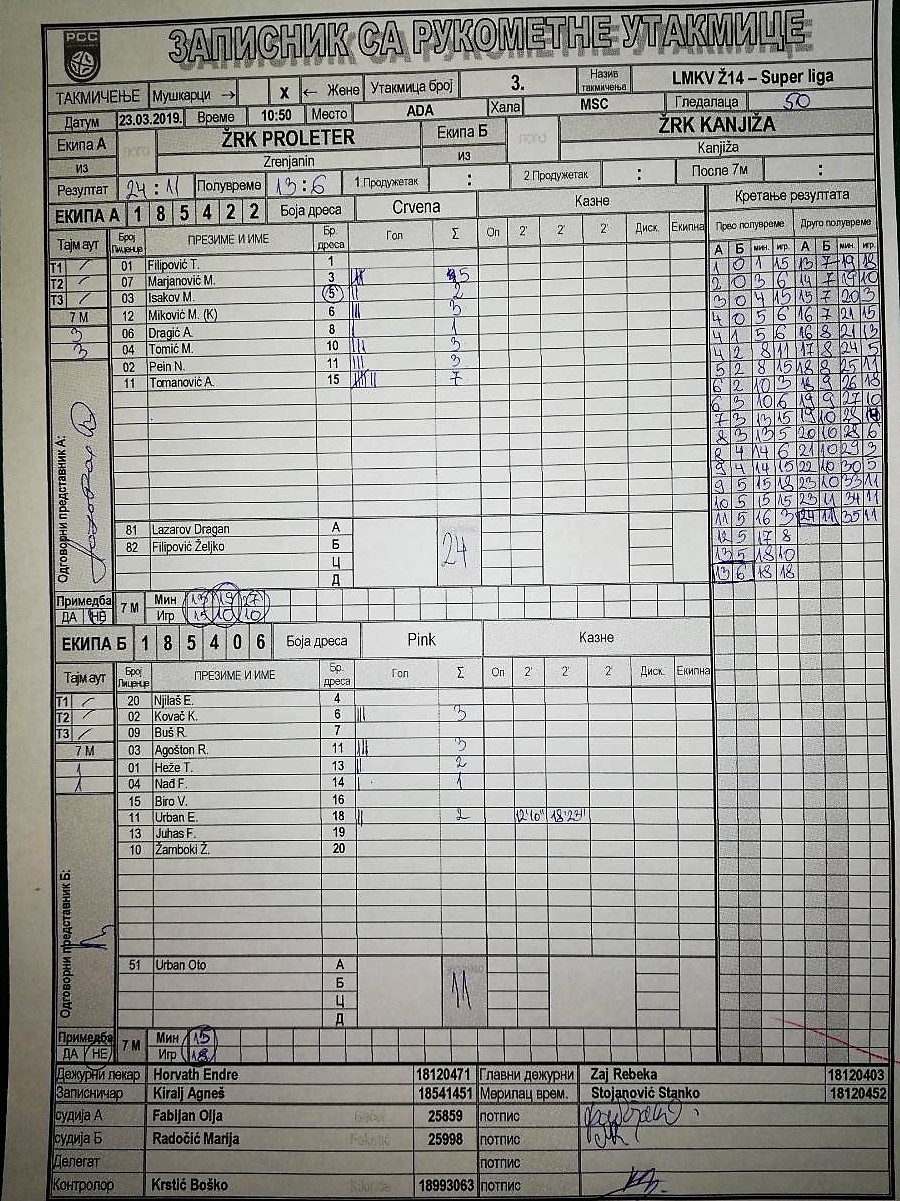 РСС
ЗАПИСНИК СА РУКОМЕТНЕ УТАКМИЦЕ
ТАКМИЧЕЊЕ Мушкарци → X ← Жене Утакмица број 3. Назив такмичења LMKV Ž14 – Super liga
Датум 23.03.2019. Време 10:50 Место ADA Хала MSC Гледалаца 50
Екипа А ŽRK PROLETER Екипа Б ŽRK KANJIŽA
из Zrenjanin из Kanjiža
Резултат 24:11 Полувреме 13:6 1.Продужетак : 2.Продужетак : После 7м :
ЕКИПА А 1 8 5 4 2 2 Боја дреса Crvena Казне Кретање резултата
Прво полувреме Друго полувреме
Тајм аут Број Лиценце ПРЕЗИМЕ И ИМЕ Бр. дреса Гол Σ Оп 2' 2' 2' Диск. Екипна А Б мин. игр. А Б мин. игр.
Т1 01 Filipović T. 1
Т2 07 Marjanović M. 3 5
Т3 03 Isakov M. 5 2
7 М 12 Miković M. (K) 6 3
3 06 Dragić A. 8 1
3 04 Tomić M. 10 3
02 Pein N. 11 3
11 Tomanović A. 15 7
1 0 1 15 13 7 19 18
2 0 3 6 14 7 19 10
3 0 4 15 15 7 20 3
4 0 5 6 16 7 21 15
4 1 5 6 16 8 21 13
4 2 8 11 17 8 24 5
5 2 8 15 18 8 25 11
6 2 10 3 18 9 26 18
6 3 10 6 19 9 27 10
7 3 13 15 19 10 28
8 3 13 5 20 10 28 6
8 4 14 6 21 10 29 3
9 4 14 15 22 10 30 5
9 5 15 18 23 10 33 11
10 5 15 15 23 11 34 11
11 5 16 3 24 11 35 11
12 5 17 8
13 5 18 10
13 6 18 18
Одговорни представник А:
81 Lazarov Dragan А
82 Filipović Željko Б
Ц
Д
24
Примедба ДА НЕ 7 М Мин 13 19 27
Игр 15 10 10
ЕКИПА Б 1 8 5 4 0 6 Боја дреса Pink Казне
Тајм аут Број Лиценце ПРЕЗИМЕ И ИМЕ Бр. дреса Гол Σ Оп 2' 2' 2' Диск. Екипна
Т1 20 Njilaš E. 4
Т2 02 Kovač K. 6 3
Т3 09 Buš R. 7
7 М 03 Agošton R. 11 3
1 01 Heže T. 13 2
1 04 Nađ F. 14 1
15 Biro V. 16
11 Urban E. 18 2 18'23"
13 Juhas F. 19
10 Žamboki Ž. 20
Одговорни представник Б:
51 Urban Oto А
Б
Ц
Д
11
Примедба ДА НЕ 7 М Мин 15
Игр 18
Дежурни лекар Horvath Endre 18120471 Главни дежурни Zaj Rebeka 18120403
Записничар Kiralj Agneš 18541451 Мерилац врем. Stojanović Stanko 18120452
судија А Fabijan Olja 25859 потпис
судија Б Radočić Marija 25998 потпис
Делегат потпис
Контролор Krstić Boško 18993063 потпис